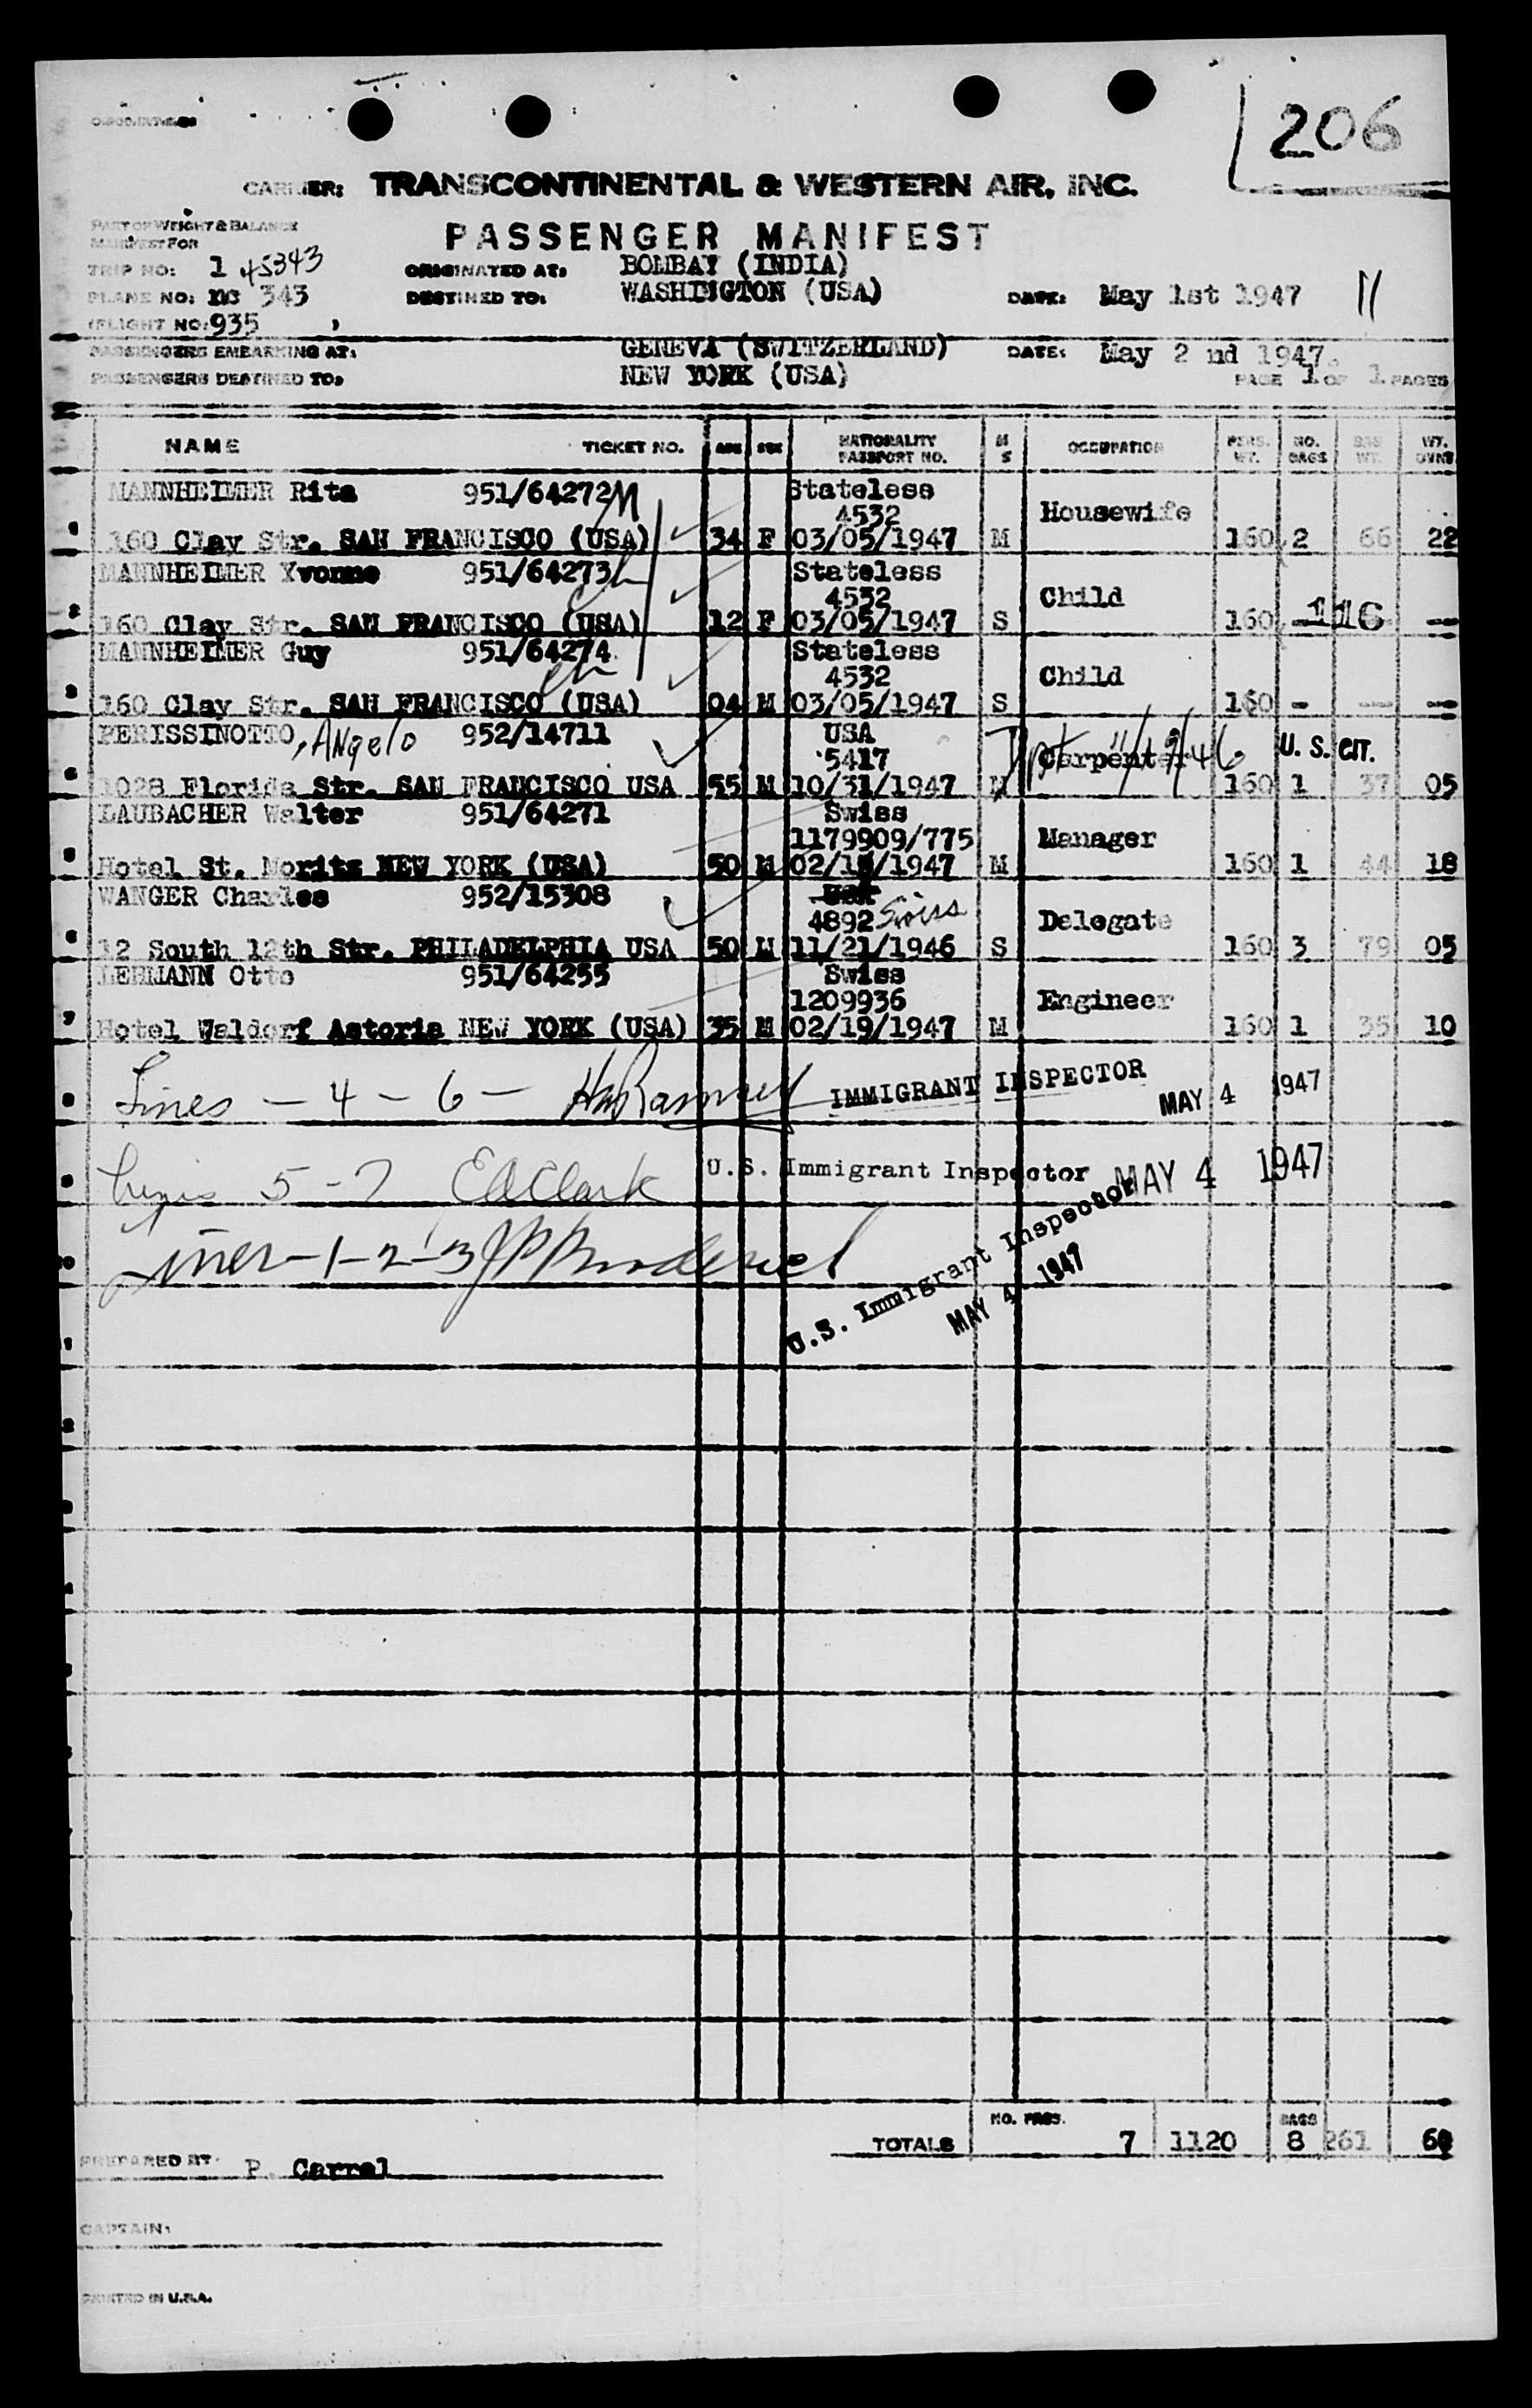 206
CARRIER: TRANSCONTINENTAL & WESTERN AIR, INC.
PART OF WEIGHT & BALANCE
MANIFEST FOR
PASSENGER MANIFEST
TRIP NO: 1 45343 ORIGINATED AT: BOMBAY (INDIA)
PLANE NO: 343 DESTINED TO: WASHINGTON (USA) DATE: May 1st 1947 11
(FLIGHT NO: 935 )
PASSENGERS EMBARKING AT: GENEVA (SWITZERLAND) DATE: May 2 nd 1947.
PASSENGERS DESTINED TO: NEW YORK (USA) PAGE 1 OF 1 PAGES
NAME TICKET NO. AGE SEX NATIONALITY PASSPORT NO. M S OCCUPATION PERS. WT. NO. BAGS BAG WT. WT. OVER
MANNHEIMER Rita 951/64272 M Stateless
4532 Housewife
1 160 Clay Str. SAN FRANCISCO (USA) 34 F 03/05/1947 M 160 2 66 22
MANNHEIMER Yvonne 951/64273 Stateless
ch 4532 Child
2 160 Clay Str. SAN FRANCISCO (USA) 12 F 03/05/1947 S 160 - 116 -
MANNHEIMER Guy 951/64274 Stateless
ch 4532 Child
3 160 Clay Str. SAN FRANCISCO (USA) 04 M 03/05/1947 S 160 - - -
PERISSINOTTO, Angelo 952/14711 USA
5417 Carpenter U. S. CIT.
1028 Florida Str. SAN FRANCISCO USA 55 M 10/31/1947 M 160 1 37 05
LAUBACHER Walter 951/64271 Swiss
1179909/775 Manager
5 Hotel St. Moritz NEW YORK (USA) 50 M 02/1/1947 M 160 1 44 18
WANGER Charles 952/15308 USA
4892 Swiss Delegate
6 12 South 12th Str. PHILADELPHIA USA 50 M 11/21/1946 S 160 3 79 05
LEHMANN Otto 951/64255 Swiss
1209936 Engineer
7 Hotel Waldorf Astoria NEW YORK (USA) 35 M 02/19/1947 M 160 1 35 10
Lines - 4 - 6 - IMMIGRANT INSPECTOR MAY 4 1947
Lines 5 - 7 EdClark U.S. Immigrant Inspector MAY 4 1947
Lines - 1 - 2 - 3 U.S. Immigrant Inspector
MAY 4 1947
NO. PASS. BAGS
TOTALS 7 1120 8 261 60
PREPARED BY: P. Carrel
CAPTAIN:
PRINTED IN U.S.A.